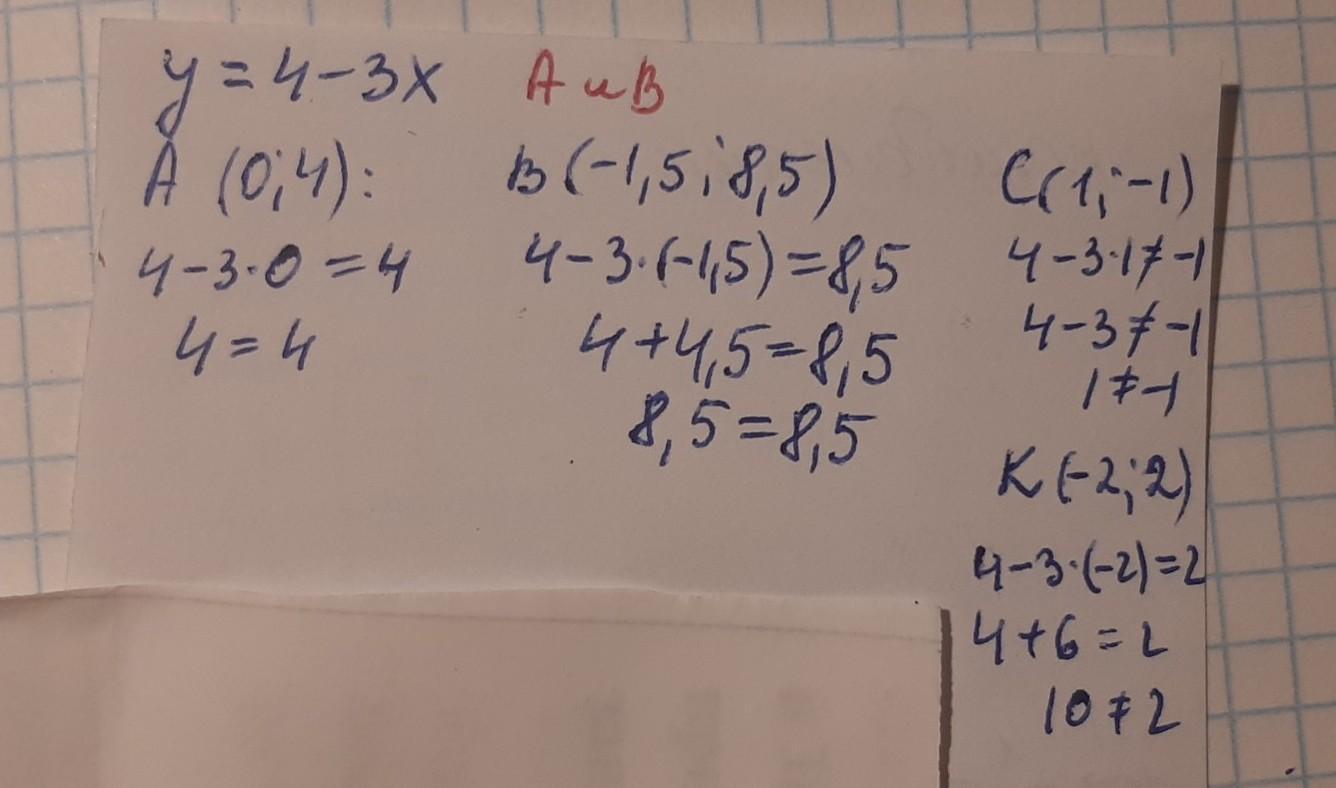 y = 4 - 3x   А и В
А (0; 4):
4 - 3·0 = 4
4 = 4
В (-1,5; 8,5)
4 - 3·(-1,5) = 8,5
4 + 4,5 = 8,5
8,5 = 8,5
С (1; -1)
4 - 3·1 ≠ -1
4 - 3 ≠ -1
1 ≠ -1
К (-2; 2)
4 - 3·(-2) = 2
4 + 6 = 2
10 ≠ 2